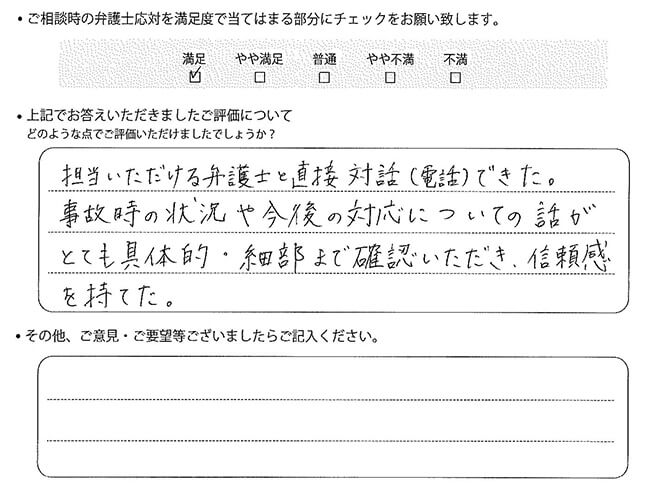 ・ご相談時の弁護士応対を満足度で当てはまる部分にチェックをお願い致します。
満足 やや満足 普通 やや不満 不満
☑ □ □ □ □
・上記でお答えいただきましたご評価について
どのような点でご評価いただけましたでしょうか？
担当いただける弁護士と直接対話(電話)できた。
事故時の状況や今後の対応についての話が
とても具体的・細部まで確認いただき、信頼感
を持てた。
・その他、ご意見・ご要望等ございましたらご記入ください。